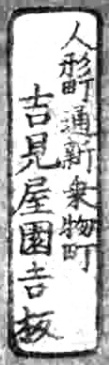 人形町通新乗物町
吉見屋園吉板